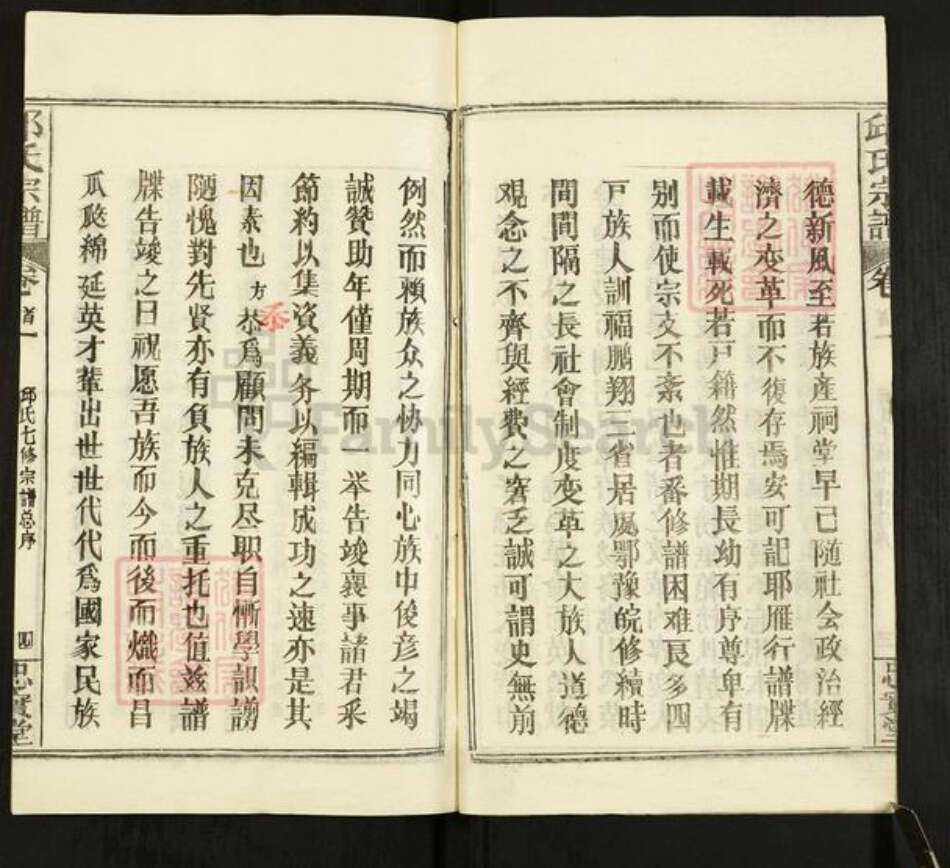 德新風至若族產祠堂早已随社会政治經
濟之变革而不復存焉安可記耶雁行譜牒
載生載死若戸籍然惟期長幼有序尊卑有
别而使宗支不紊也者番修譜困难良多四
戸族人訓福鵬翔三省居處鄂豫皖修續時
間間隔之長社會制度变革之大族人道德
观念之不齊與經費之窘乏誠可謂史無前
例然而賴族众之协力同心族中俊彦之竭
誠贊助年僅周期而一举告竣襄事諸君采
節約以集資義务以編輯成功之速亦是其
因素也方忝恭爲顧問未克尽职自慚學識謭
陋愧對先賢亦有負族人之重托也值兹譜
牒告竣之日祝愿吾族而今而後而熾而昌
瓜瓞綿延英才輩出世世代代爲國家民族
邱氏宗譜
卷首一
邱氏七修宗譜总序
四
忠實堂
邱氏宗譜
卷
忠實堂
FamilySearch